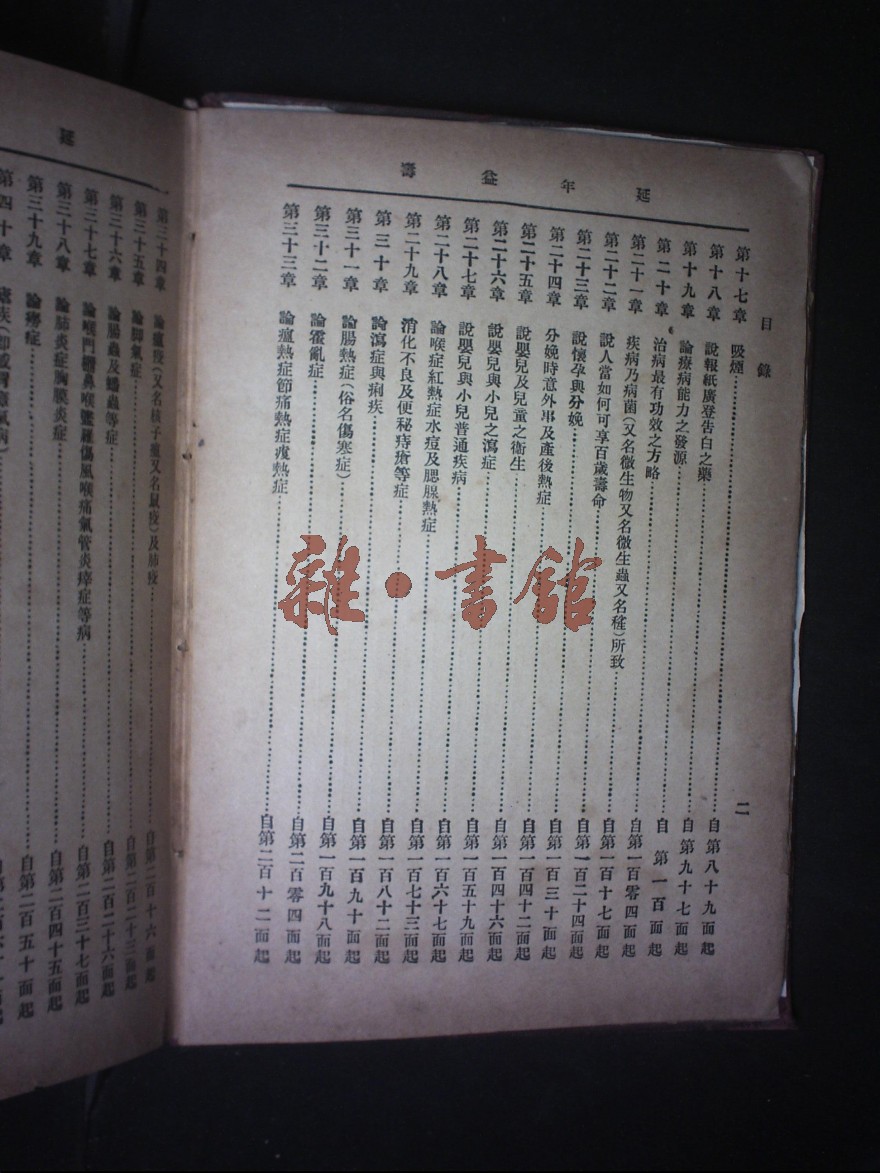 延年益壽
目錄 二
第十七章 吸煙……自第八十九面起
第十八章 說報紙廣登告白之藥……自第九十七面起
第十九章 論療病能力之發源……自第一百面起
第二十章 治病最有功效之方略……自第一百零四面起
第二十一章 疾病乃病菌(又名微生物又名微生蟲又名䅵)所致……自第一百十七面起
第二十二章 說人當如何可享百歲壽命……自第一百二十四面起
第二十三章 說懷孕與分娩……自第一百三十面起
第二十四章 分娩時意外事及產後熱症……自第一百四十二面起
第二十五章 說嬰兒及兒童之衞生……自第一百四十六面起
第二十六章 說嬰兒與小兒之瀉症……自第一百五十九面起
第二十七章 說嬰兒與小兒普通疾病……自第一百六十七面起
第二十八章 論喉症紅熱症水痘及腮腺熱症……自第一百七十三面起
第二十九章 消化不良及便秘痔瘡等症……自第一百八十二面起
第三十章 論瀉症與痢疾……自第一百九十面起
第三十一章 論腸熱症(俗名傷寒症)……自第一百九十八面起
第三十二章 論霍亂症……自第二百零四面起
第三十三章 論瘟熱症節痛熱症瘧熱症……自第二百十二面起
延
第三十四章 論瘟疫(又名核子瘟又名鼠疫)及肺疫……自第二百十六面起
第三十五章 論脚氣症……自第二百二十三面起
第三十六章 論腸蟲及蟠蟲等症……自第二百二十六面起
第三十七章 論喉門鼻喉雜傷風喉痛氣管炎等病……自第二百三十七面起
第三十八章 論肺炎症胸膜炎症……自第二百四十五面起
第三十九章 論癆症……自第二百五十面起
第四十章
雜·書館